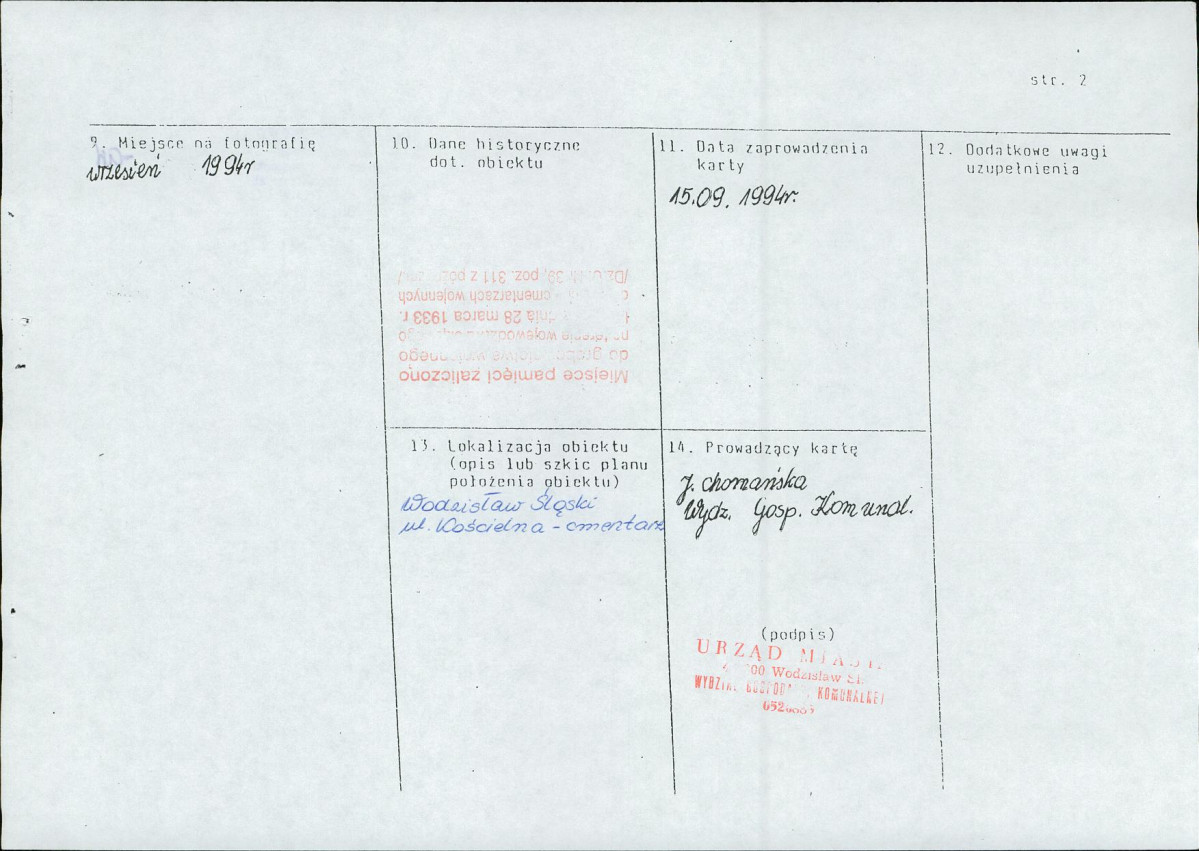 str. 2
9. Miejsce na fotografię
wrzesień 1994r
10. Dane historyczne
dot. obiektu
Miejsce pamięci zaliczono
do
28 marca 1933 r.
cmentarzach wojennych
39, poz. 311 z
11. Data zaprowadzenia
karty
15.09.1994r.
12. Dodatkowe uwagi
uzupełnienia
13. Lokalizacja obiektu
(opis lub szkic planu
położenia obiektu)
Wodzisław Śląski
ul. Kościelna - cmentarz
14. Prowadzący kartę
J. Chomańska
Wydz. Gosp. Komunal.
(podpis)
URZĄD
Wodzisław Śl.
KOMUNALNEJ